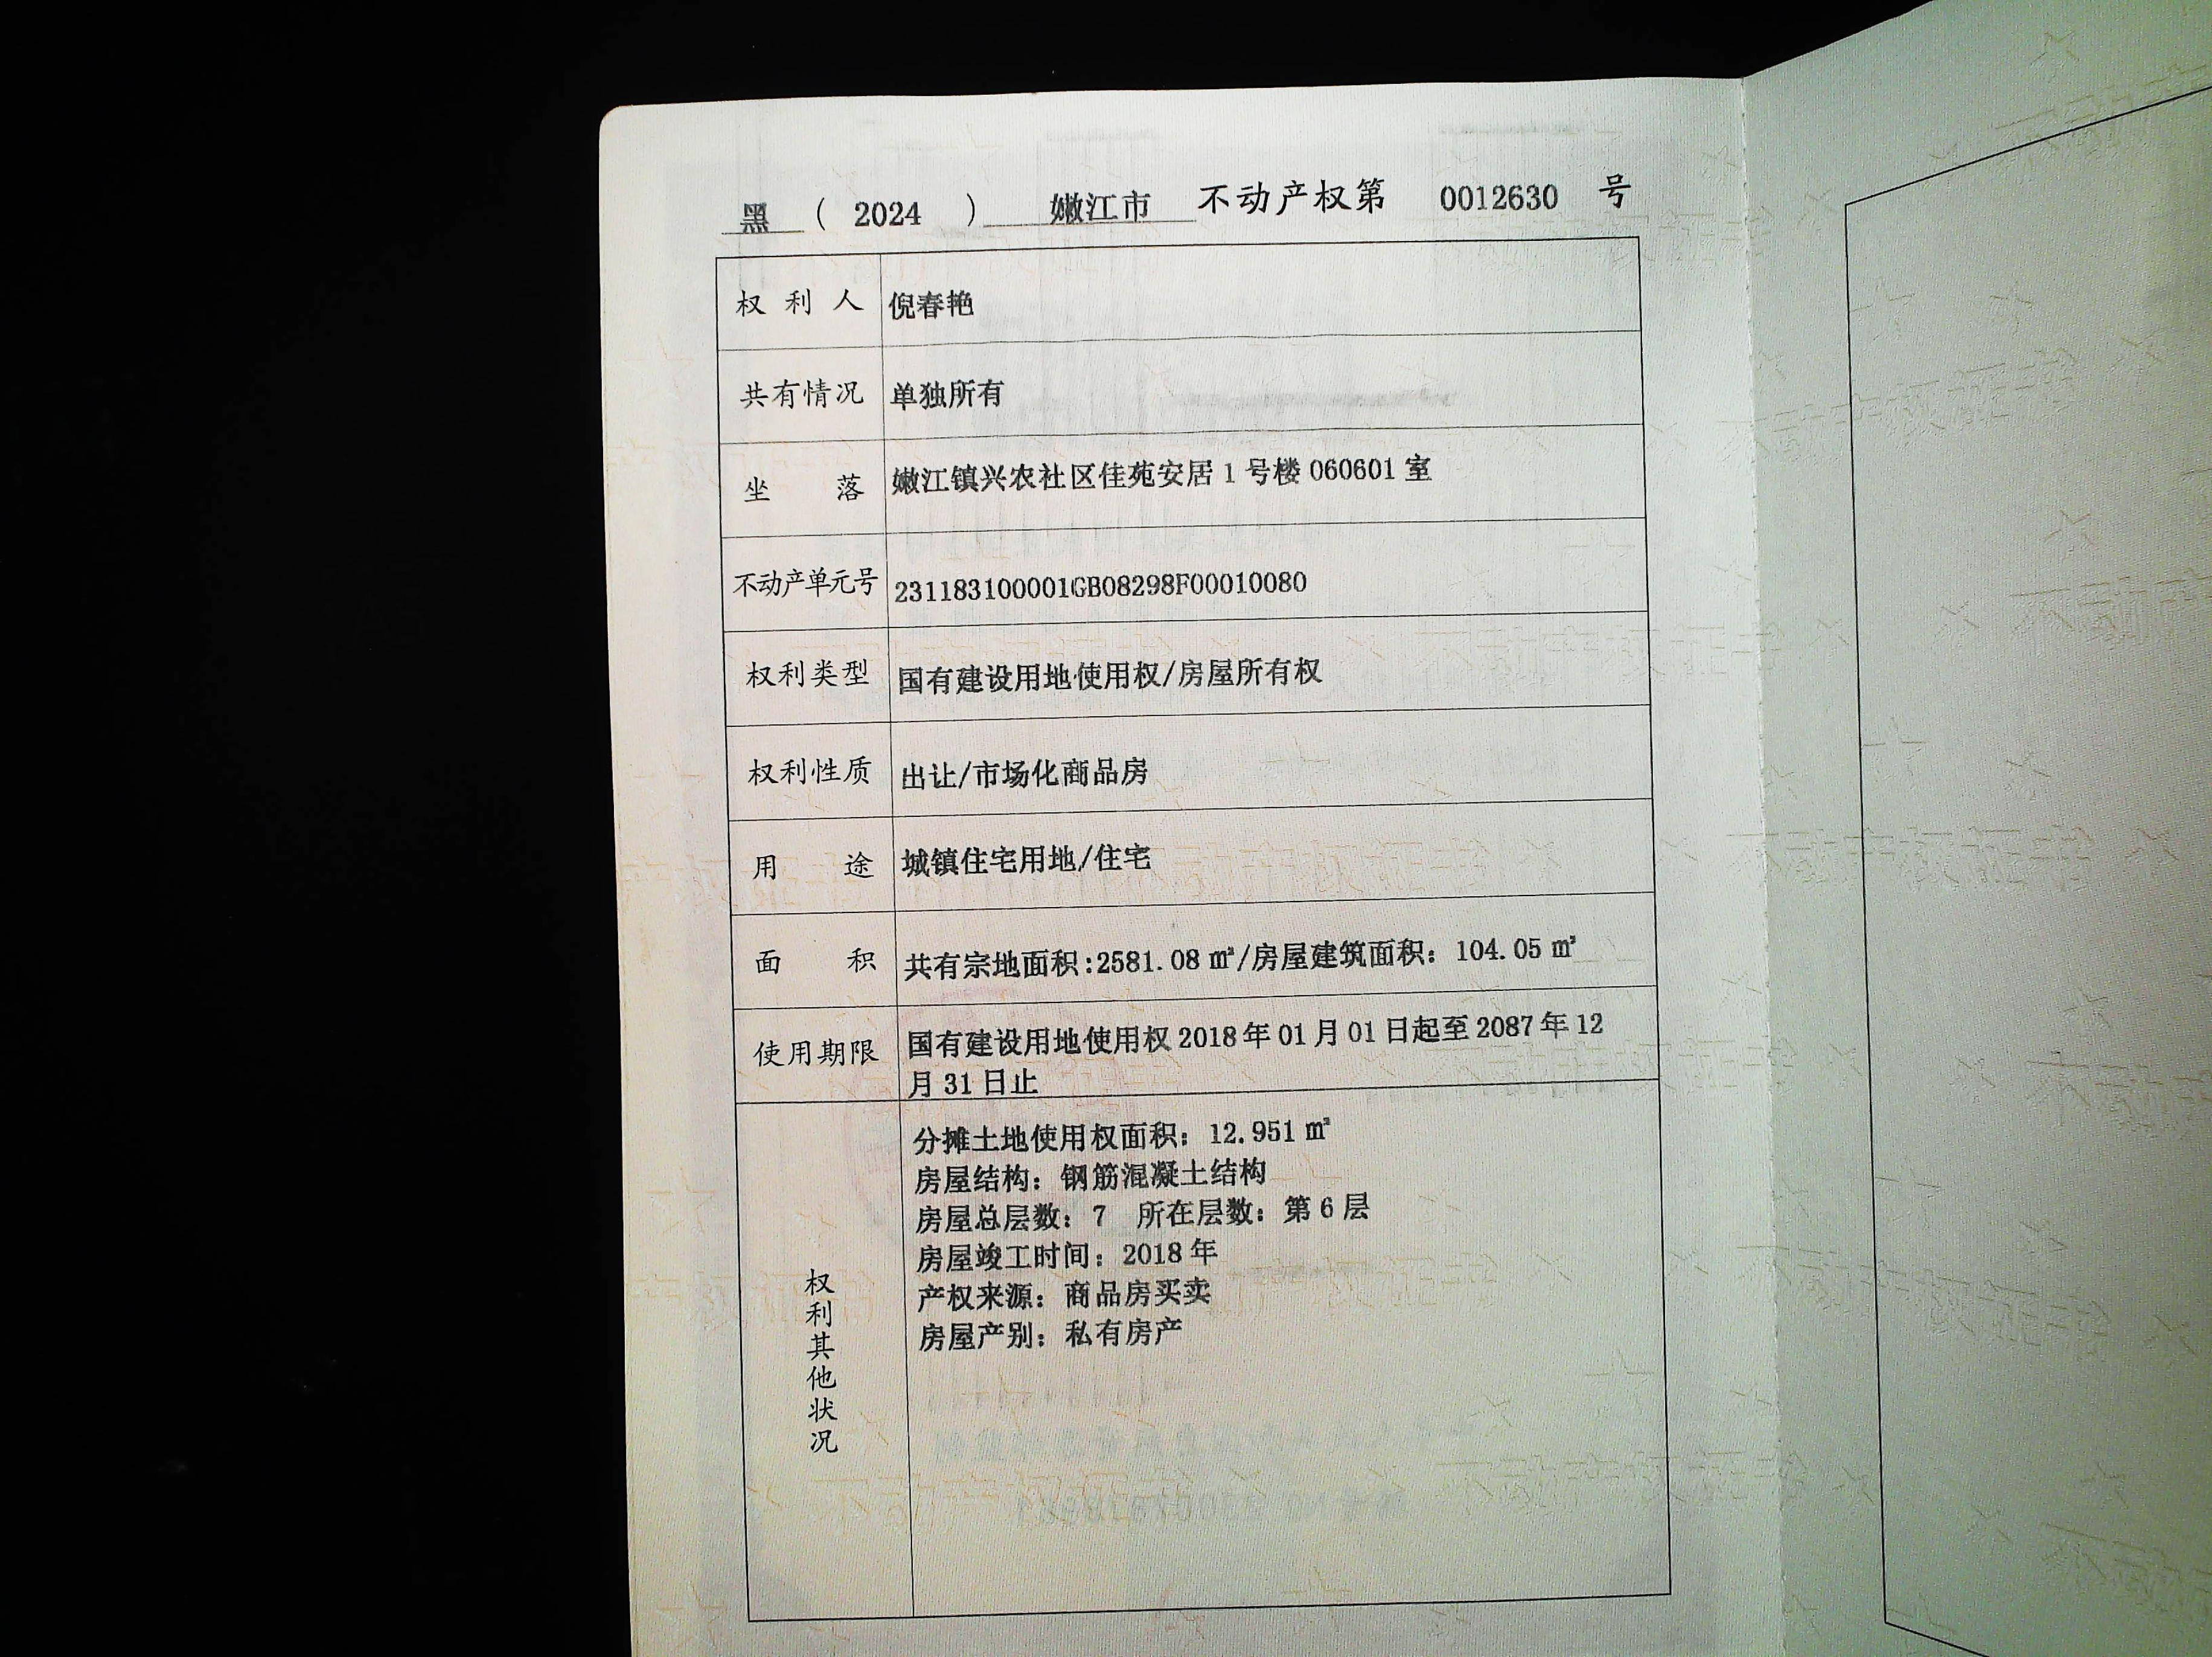 黑 ( 2024 ) 嫩江市 不动产权第 0012630 号
权利人 倪春艳
共有情况 单独所有
坐落 嫩江镇兴农社区佳苑安居 1 号楼 060601 室
不动产单元号 231183100001GB08298F00010080
权利类型 国有建设用地使用权/房屋所有权
权利性质 出让/市场化商品房
用途 城镇住宅用地/住宅
面积 共有宗地面积:2581.08 ㎡/房屋建筑面积: 104.05 ㎡
使用期限 国有建设用地使用权 2018 年 01 月 01 日起至 2087 年 12
月 31 日止
权利其他状况
分摊土地使用权面积: 12.951 ㎡
房屋结构: 钢筋混凝土结构
房屋总层数: 7 所在层数: 第 6 层
房屋竣工时间: 2018 年
产权来源: 商品房买卖
房屋产别: 私有房产